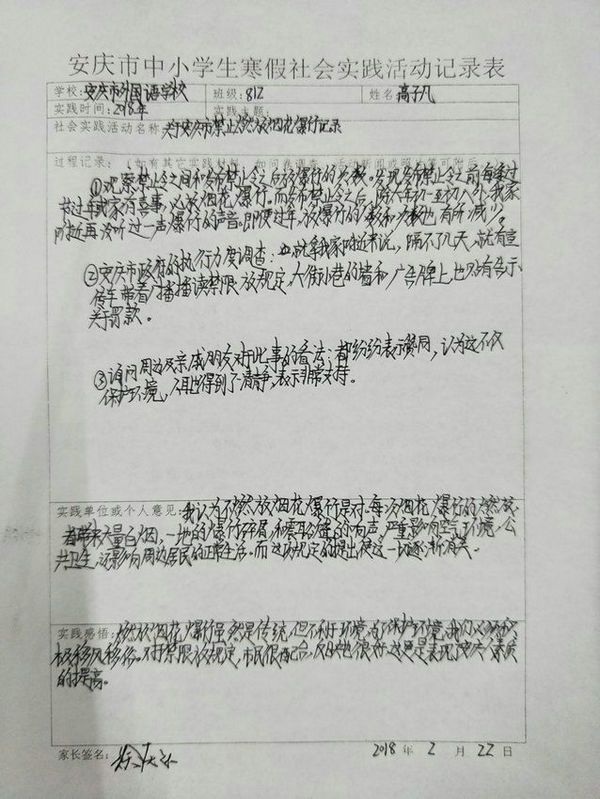 安庆市中小学生寒假社会实践活动记录表
学校: 安庆市外国语学校 班级: 812 姓名 高子凡
实践时间: 2018年 实践主题:
社会实践活动名称 关于安庆市禁止燃放烟花爆竹记录
过程记录:(如有其它实践材料,如问卷调查、活动新闻或照片等可附后
①观察禁止令之间和发布禁止令之后放爆竹的次数。发现发布禁止令之前每逢过
节过年或家有喜事,必放烟花爆竹。而发布禁止令之后,除大年初一至初八外,我家
附近再没听过一声爆竹的声音。即便过年,放爆竹的人数和次数也有所减少。
②安庆市政府的执行力度调查:就我家附近来说,隔不了几天,就有宣
传车带着广播播读禁限放规定,大街小巷的墙和广告牌上,也贴有告示
关于罚款。
③询问周边及亲戚朋友对于此事的看法:都纷纷表示赞同,认为这不仅
保护环境,耳边也得到了清静,表示非常支持。
实践单位或个人意见: 我认为不燃放烟花爆竹是对,每次烟花爆竹的燃放
都带来大量白烟,一地的爆竹碎屑和震耳欲聋的响声,严重影响空气环境,公
共卫生,还影响周边居民的正常生活。而这次规定的提出使这一切逐渐消失。
实践感悟: 燃放烟花爆竹虽然是传统,但不利于环境,为了保护环境,我们
移风移俗。不打禁限放规定,市民很配合,反映也很好,这更是表现了安庆人素质
的提高。
家长签名: 2018 年 2 月 22 日